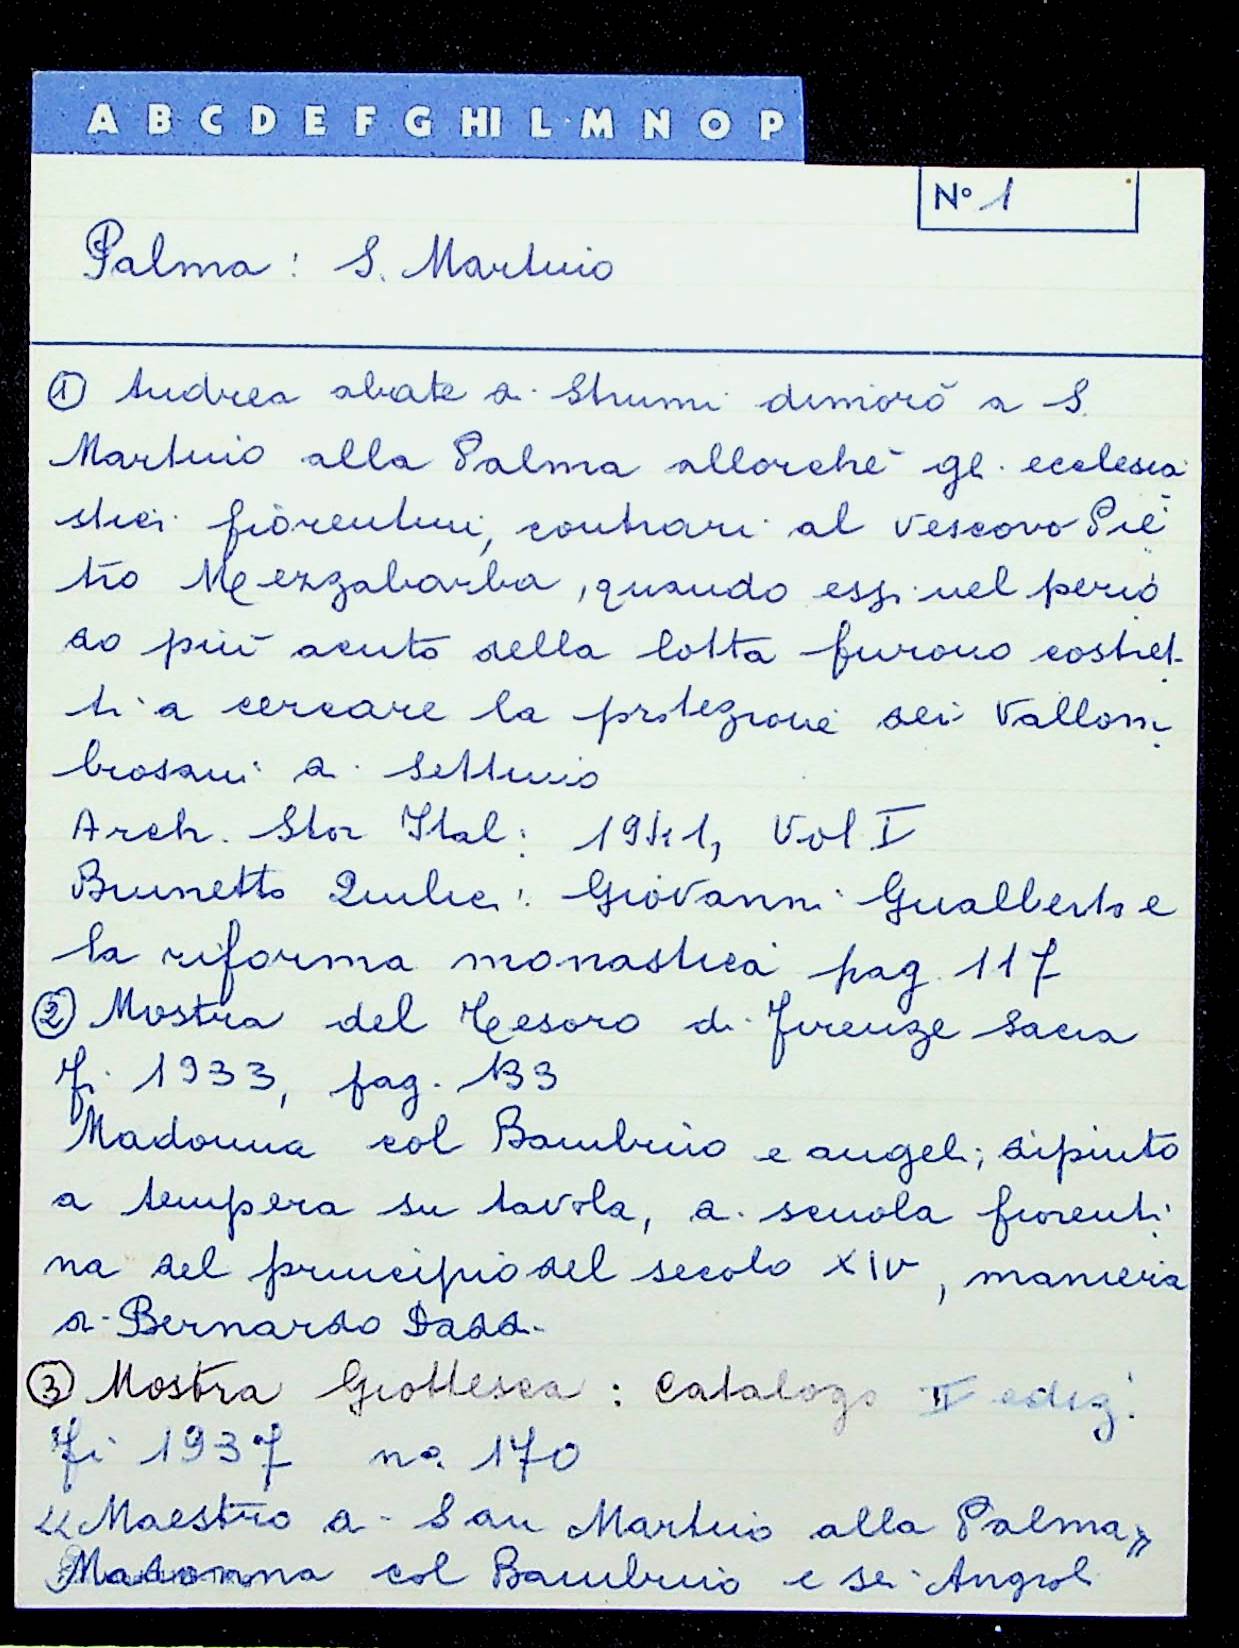 A B C D E F G HI L M N O P
N° 1
Palma: S. Martino
① Andrea abate di Strumi dimorò a S.
Martino alla Palma allorché gli ecclesia
stici fiorentini, contrari al vescovo Pie
tro Mezzabarba, quando essi nel perio
do più acuto della lotta furono costret-
ti a cercare la protezione dei Vallom
brosani di Settimo
Arch. Stor Ital: 1941, Vol I
Brunetto Quilici: Giovanni Gualberto e
la riforma monastica pag. 117
② Mostra del Tesoro di Firenze Sacra
Fi 1933, pag. 133
Madonna col Bambino e angeli; dipinto
a tempera su tavola, di scuola fiorenti
na del principio del secolo XIV, maniera
di Bernardo Daddi
③ Mostra Giottesca: Catalogo II ediz.
Fi 1937 no. 170
«Maestro di San Martino alla Palma»
Madonna col Bambino e sei Angioli